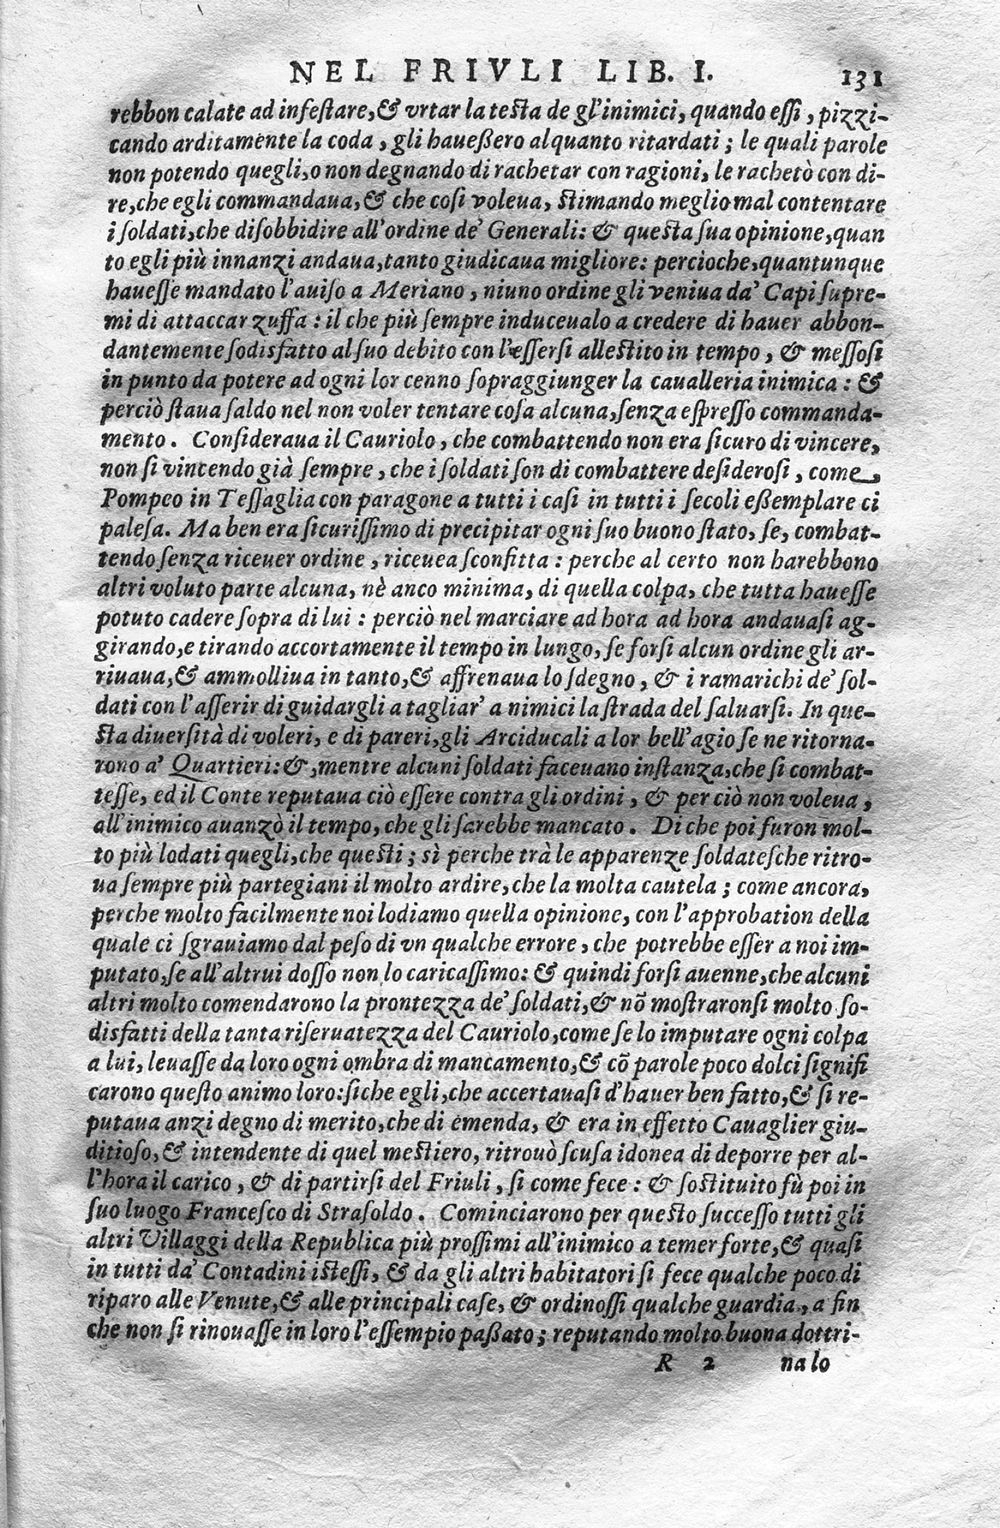 NEL FRIVLI LIB. I. 131
rebbon calate ad infestare, & vrtar la testa de gl'inimici, quando essi, pizzi-
cando arditamente la coda, gli haueßero alquanto ritardati; le quali parole
non potendo quegli, o non degnando di rachetar con ragioni, le rachetò con di-
re, che egli commandaua, & che cosi voleua, stimando meglio mal contentare
i soldati, che disobbidire all'ordine de' Generali: & questa sua opinione, quan
to egli più innanzi andaua, tanto giudicaua migliore: percioche, quantunque
hauesse mandato l'auiso a Meriano, niuno ordine gli veniua da' Capi supre-
mi di attaccar zuffa: il che più sempre induceualo a credere di hauer abbon-
dantemente sodisfatto al suo debito con l'essersi allestito in tempo, & messosi
in punto da potere ad ogni lor cenno sopraggiunger la caualleria inimica: &
perciò staua saldo nel non voler tentare cosa alcuna, senza espresso commanda-
mento. Consideraua il Cauriolo, che combattendo non era sicuro di vincere,
non si vincendo già sempre, che i soldati son di combattere desiderosi, come
Pompeo in Tessaglia con paragone a tutti i casi in tutti i secoli eßemplare ci
palesa. Ma ben era sicurissimo di precipitar ogni suo buono stato, se, combat-
tendo senza riceuer ordine, riceuea sconfitta: perche al certo non harebbono
altri voluto parte alcuna, nè anco minima, di quella colpa, che tutta hauesse
potuto cadere sopra di lui: perciò nel marciare ad hora ad hora andauasi ag-
girando, e tirando accortamente il tempo in lungo, se forsi alcun ordine gli ar-
riuaua, & ammolliua in tanto, & affrenaua lo sdegno, & i ramarichi de' sol-
dati con l'asserir di guidargli a tagliar' a nimici la strada del saluarsi. In que-
sta diuersità di voleri, e di pareri, gli Arciducali a lor bell'agio se ne ritorna-
rono a' Quartieri: &, mentre alcuni soldati faceuano instanza, che si combat-
tesse, ed il Conte reputaua ciò essere contra gli ordini, & per ciò non voleua,
all'inimico auanzò il tempo, che gli sarebbe mancato. Di che poi furon mol-
to più lodati quegli, che questi; sì perche trà le apparenze soldatesche ritro-
ua sempre più partegiani il molto ardire, che la molta cautela; come ancora,
perche molto facilmente noi lodiamo quella opinione, con l'approbation della
quale ci sgrauiamo dal peso di vn qualche errore, che potrebbe esser a noi im-
putato, se all'altrui dosso non lo caricassimo: & quindi forsi auenne, che alcuni
altri molto comendarono la prontezza de' soldati, & nõ mostraronsi molto so-
disfatti della tanta riseruatezza del Cauriolo, come se lo imputare ogni colpa
a lui, leuasse da loro ogni ombra di mancamento, & cõ parole poco dolci signifi
carono questo animo loro: siche egli, che accertauasi d'hauer ben fatto, & si re-
putaua anzi degno di merito, che di emenda, & era in effetto Cauaglier giu-
ditioso, & intendente di quel mestiero, ritrouò scusa idonea di deporre per al-
l'hora il carico, & di partirsi del Friuli, si come fece: & sostituito fù poi in
suo luogo Francesco di Strasoldo. Cominciarono per questo successo tutti gli
altri Villaggi della Republica più prossimi all'inimico a temer forte, & quasi
in tutti da' Contadini istessi, & da gli altri habitatori si fece qualche poco di
riparo alle Venute, & alle principali case, & ordinossi qualche guardia, a fin
che non si rinouasse in loro l'essempio paßato; reputando molto buona dottri-
R 2 na lo